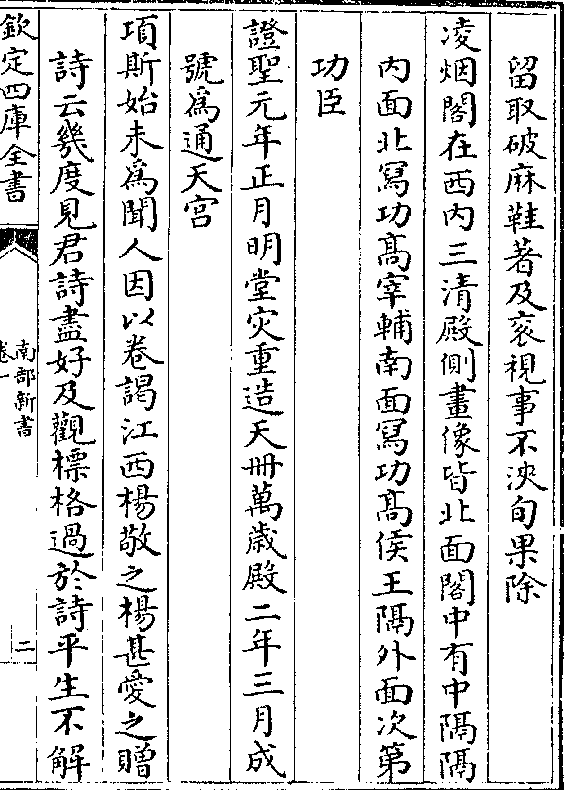 留取破麻鞋著及衮視事不浹旬果除
凌烟閣在西内三清殿側畫像皆北面閣中有中隔隔
内面北寫功髙宰輔南面寫功髙侯王隔外面次第
功臣
證聖元年正月明堂灾重造天冊萬歳殿二年三月成
號爲通天宫
項斯始未爲聞人因以卷謁江西楊敬之楊甚愛之贈
詩云幾度見君詩盡好及觀標格過於詩平生不解
欽定四庫全書
南部新書
卷一
二